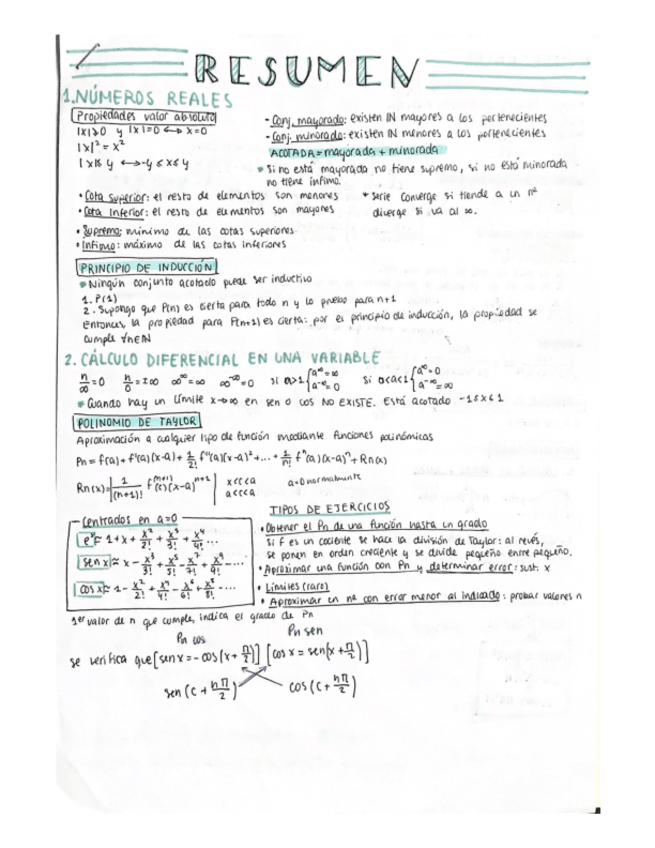 RESUMEN
1. NÚMEROS REALES
Propiedades valor absoluto
|x|≥0 y |x|=0 ↔ x=0
|x|² = x²
|x|≤ y ↔ -y ≤ x ≤ y
- Conj. mayorado: existen IN mayores a los pertenecientes
- Conj. minorado: existen IN menores a los pertenecientes
ACOTADA = mayorada + minorada
* Si no está mayorada no tiene supremo, si no está minorada
no tiene ínfimo.
• Cota superior: el resto de elementos son menores
• Cota inferior: el resto de elementos son mayores
* Serie converge si tiende a un nº
diverge si va al ∞.
• Supremo: mínimo de las cotas superiores
• Ínfimo: máximo de las cotas inferiores
PRINCIPIO DE INDUCCIÓN
* Ningún conjunto acotado puede ser inductivo
1. P(1)
2. Supongo que P(n) es cierta para todo n y lo pruebo para n+1
Entonces, la propiedad para P(n+1) es cierta: por el principio de inducción, la propiedad se
cumple ∀n∈IN
2. CÁLCULO DIFERENCIAL EN UNA VARIABLE
n/∞ = 0 n/0 = ±∞ ∞^∞ = ∞ ∞^-∞ = 0 si a>1 { a^∞ = ∞ a^-∞ = 0 si 0<a<1 { a^∞ = 0 a^-∞ = ∞
* Cuando hay un límite x→∞ en sen o cos NO EXISTE. Está acotado -1≤x≤1
POLINOMIO DE TAYLOR
Aproximación a cualquier tipo de función mediante funciones polinómicas
Pn = f(a) + f'(a)(x-a) + 1/2! f''(a)(x-a)² + ... + 1/n! fⁿ(a)(x-a)ⁿ + Rn(x)
Rn(x) = | 1/(n+1)! f^(n+1)(c)(x-a)^n+1 | x<c<a
a<c<x
a=0 normalmente
Centrados en a=0
e^x ≈ 1 + x + x²/2! + x³/3! + x⁴/4! ...
sen x ≈ x - x³/3! + x⁵/5! - x⁷/7! + x⁹/9! ...
cos x ≈ 1 - x²/2! + x⁴/4! - x⁶/6! + x⁸/8! - ...
TIPOS DE EJERCICIOS
• Obtener el Pn de una función hasta un grado
Si f es un cociente se hace la división de Taylor: al revés,
se ponen en orden creciente y se divide pequeño entre pequeño.
• Aproximar una función con Pn y determinar error: sust. x
• Límites (raro)
• Aproximar en nº con error menor al indicado: probar valores n
1er valor de n que cumple, indica el grado de Pn
Pn cos Pn sen
se verifica que [sen x = -cos(x + Π/2)] [cos x = sen(x + Π/2)]
sen(c + nΠ/2) cos(c + nΠ/2)